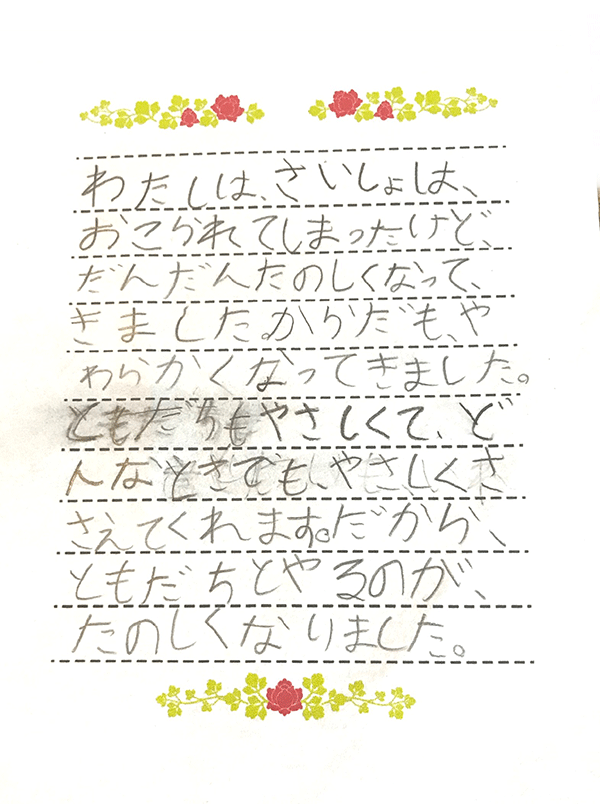 わたしは、さいしょは、
おこられてしまったけど、
だんだんたのしくなって、
きました。からだも、や
わらかくなってきました。
ともだちもやさしくて、ど
んなときでも、やさしくさ
さえてくれます。だから、
ともだちとやるのが、
たのしくなりました。